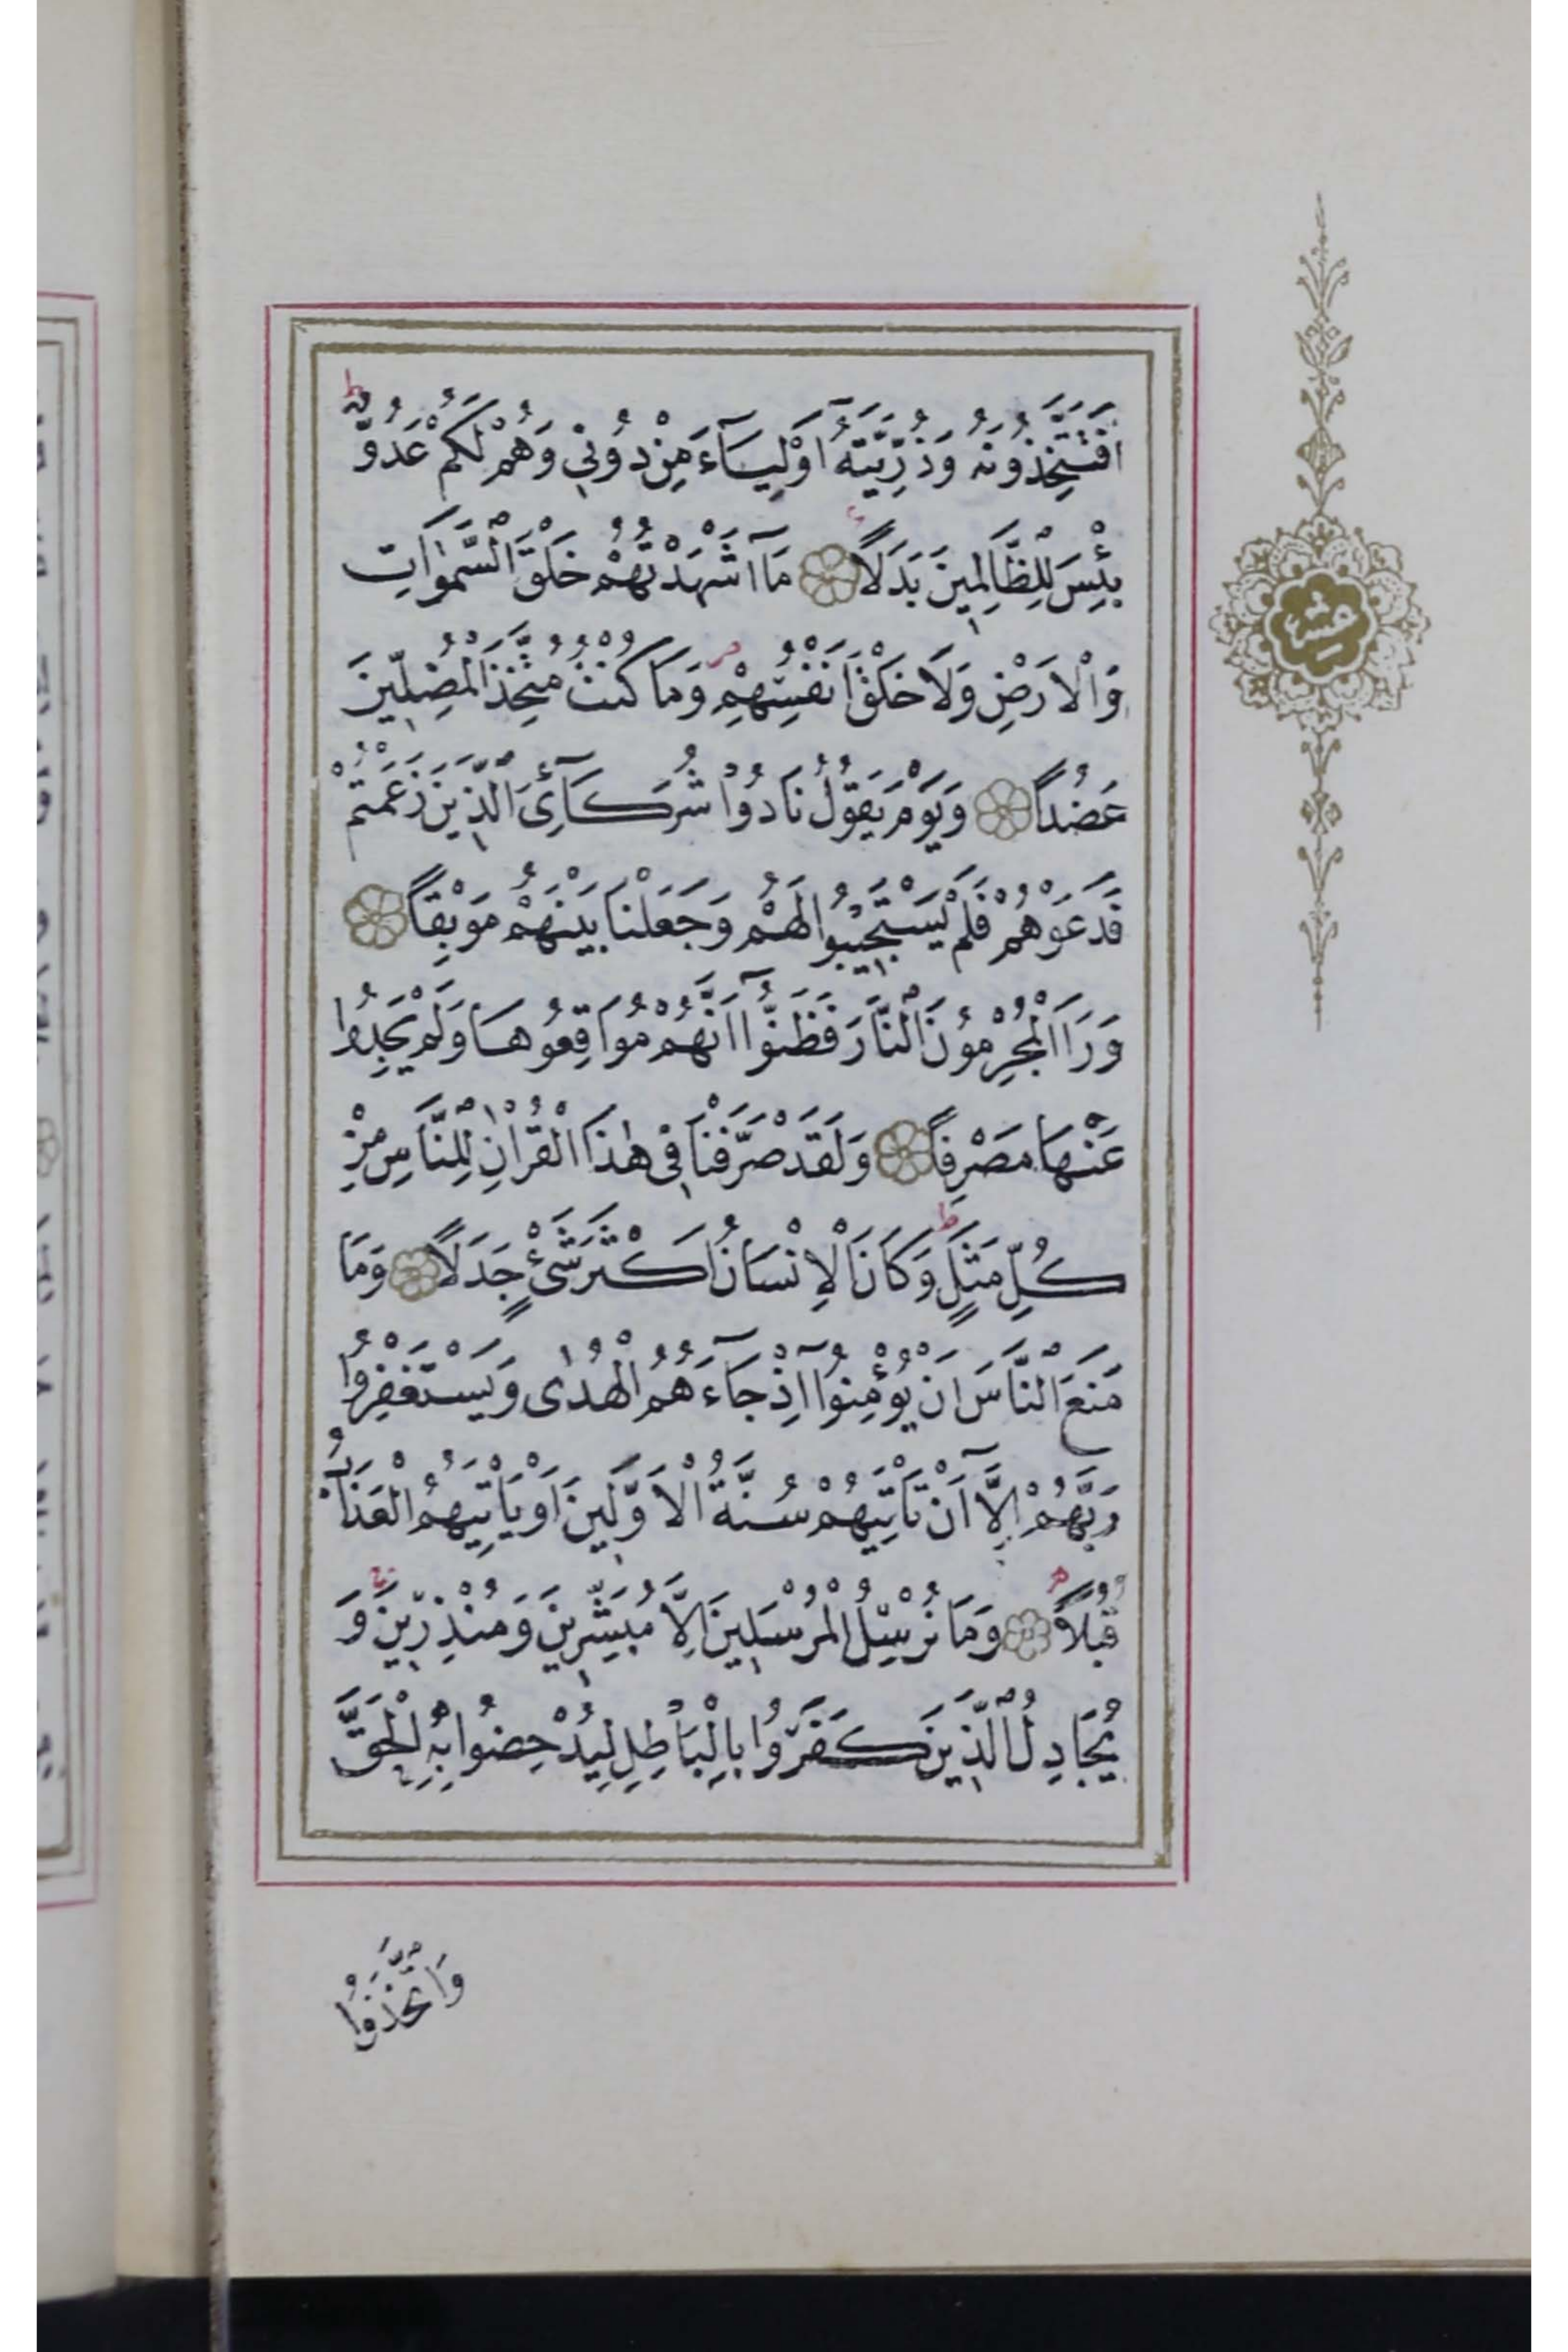 اَفَتَتَّخِذُونَهُ وَذُرِّيَّتَهُٓ اَوْلِيَٓاءَ مِنْ دُونِي وَهُمْ لَكُمْ عَدُوٌّ ط
بِئْسَ لِلظَّالِمِينَ بَدَلًا مَٓا اَشْهَدْتُهُمْ خَلْقَ السَّمٰوَاتِ
وَالْاَرْضِ وَلَا خَلْقَ اَنْفُسِهِمْ وَمَا كُنْتُ مُتَّخِذَ الْمُضِلِّينَ
عَضُدًا وَيَوْمَ يَقُولُ نَادُوا شُرَكَٓائِيَ الَّذِينَ زَعَمْتُمْ
فَدَعَوْهُمْ فَلَمْ يَسْتَجِيبُوا لَهُمْ وَجَعَلْنَا بَيْنَهُمْ مَوْبِقًا
وَرَاَ الْمُجْرِمُونَ النَّارَ فَظَنُّٓوا اَنَّهُمْ مُوَاقِعُوهَا وَلَمْ يَجِدُوا
عَنْهَا مَصْرِفًا وَلَقَدْ صَرَّفْنَا فِي هٰذَا الْقُرْاٰنِ لِلنَّاسِ مِنْ
كُلِّ مَثَلٍ ط وَكَانَ الْاِنْسَانُ اَكْثَرَ شَيْءٍ جَدَلًا وَمَا
مَنَعَ النَّاسَ اَنْ يُؤْمِنُٓوا اِذْ جَٓاءَهُمُ الْهُدٰى وَيَسْتَغْفِرُوا
رَبَّهُمْ اِلَّٓا اَنْ تَاْتِيَهُمْ سُنَّةُ الْاَوَّلِينَ اَوْ يَاْتِيَهُمُ الْعَذَابُ
قُبُلًا وَمَا نُرْسِلُ الْمُرْسَلِينَ اِلَّا مُبَشِّرِينَ وَمُنْذِرِينَ وَ
يُجَادِلُ الَّذِينَ كَفَرُوا بِالْبَاطِلِ لِيُدْحِضُوا بِهِ الْحَقَّ
وَاتَّخَذُوا
عشر